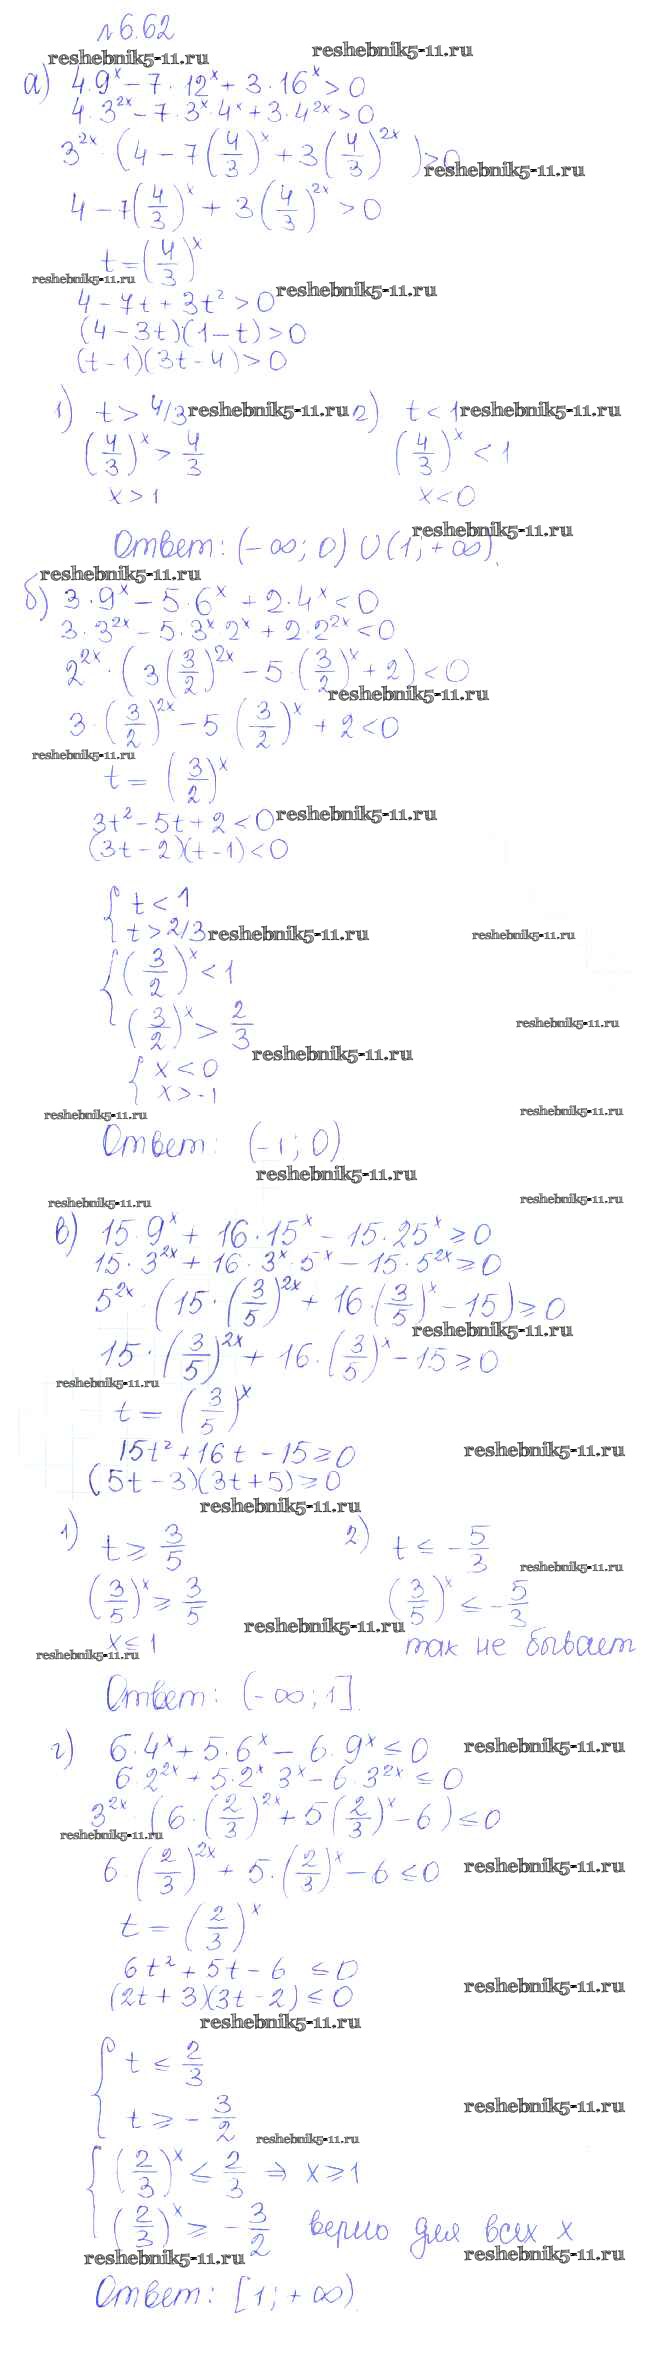 № 6.62
reshebnik5-11.ru reshebnik5-11.ru
а) 4·9^x − 7·12^x + 3·16^x > 0
4·3^2x − 7·3^x·4^x + 3·4^2x > 0
3^2x·(4 − 7(4/3)^x + 3(4/3)^2x) > 0
reshebnik5-11.ru
4 − 7(4/3)^x + 3(4/3)^2x > 0
t = (4/3)^x
reshebnik5-11.ru reshebnik5-11.ru
4 − 7t + 3t² > 0
(4 − 3t)(1 − t) > 0
(t − 1)(3t − 4) > 0
1) t > 4/3 reshebnik5-11.ru 2) t < 1 reshebnik5-11.ru
(4/3)^x > 4/3 (4/3)^x < 1
x > 1 x < 0
reshebnik5-11.ru
Ответ: (−∞; 0) ∪ (1; +∞).
reshebnik5-11.ru
б) 3·9^x − 5·6^x + 2·4^x < 0
3·3^2x − 5·3^x·2^x + 2·2^2x < 0
2^2x·(3(3/2)^2x − 5·(3/2)^x + 2) < 0
reshebnik5-11.ru
3·(3/2)^2x − 5(3/2)^x + 2 < 0
reshebnik5-11.ru
t = (3/2)^x
reshebnik5-11.ru
3t² − 5t + 2 < 0
(3t − 2)(t − 1) < 0
{ t < 1
t > 2/3 reshebnik5-11.ru reshebnik5-11.ru
{ (3/2)^x < 1
(3/2)^x > 2/3 reshebnik5-11.ru
reshebnik5-11.ru
{ x < 0
x > -1
reshebnik5-11.ru reshebnik5-11.ru
Ответ: (−1; 0)
reshebnik5-11.ru
reshebnik5-11.ru reshebnik5-11.ru
в) 15·9^x + 16·15^x − 15·25^x ≥ 0
15·3^2x + 16·3^x·5^x − 15·5^2x ≥ 0
5^2x·(15·(3/5)^2x + 16·(3/5)^x − 15) ≥ 0
reshebnik5-11.ru
15·(3/5)^2x + 16·(3/5)^x − 15 ≥ 0
reshebnik5-11.ru
t = (3/5)^x
15t² + 16t − 15 ≥ 0 reshebnik5-11.ru
(5t − 3)(3t + 5) ≥ 0
reshebnik5-11.ru
1) t ≥ 3/5 2) t ≤ −5/3
reshebnik5-11.ru
(3/5)^x ≥ 3/5 (3/5)^x ≤ −5/3
reshebnik5-11.ru
x ≤ 1 так не бывает
reshebnik5-11.ru
Ответ: (−∞; 1].
г) 6·4^x + 5·6^x − 6·9^x ≤ 0 reshebnik5-11.ru
6·2^2x + 5·2^x 3^x − 6·3^2x ≤ 0
3^2x·(6·(2/3)^2x + 5(2/3)^x − 6) ≤ 0
reshebnik5-11.ru
6·(2/3)^2x + 5·(2/3)^x − 6 ≤ 0 reshebnik5-11.ru
t = (2/3)^x
6t² + 5t − 6 ≤ 0
reshebnik5-11.ru
(2t + 3)(3t − 2) ≤ 0
reshebnik5-11.ru
{ t ≤ 2/3
t ≥ −3/2 reshebnik5-11.ru
reshebnik5-11.ru
{ (2/3)^x ≤ 2/3 ⇒ x ≥ 1
(2/3)^x ≥ −3/2 верно для всех x
reshebnik5-11.ru reshebnik5-11.ru
Ответ: [1; +∞).